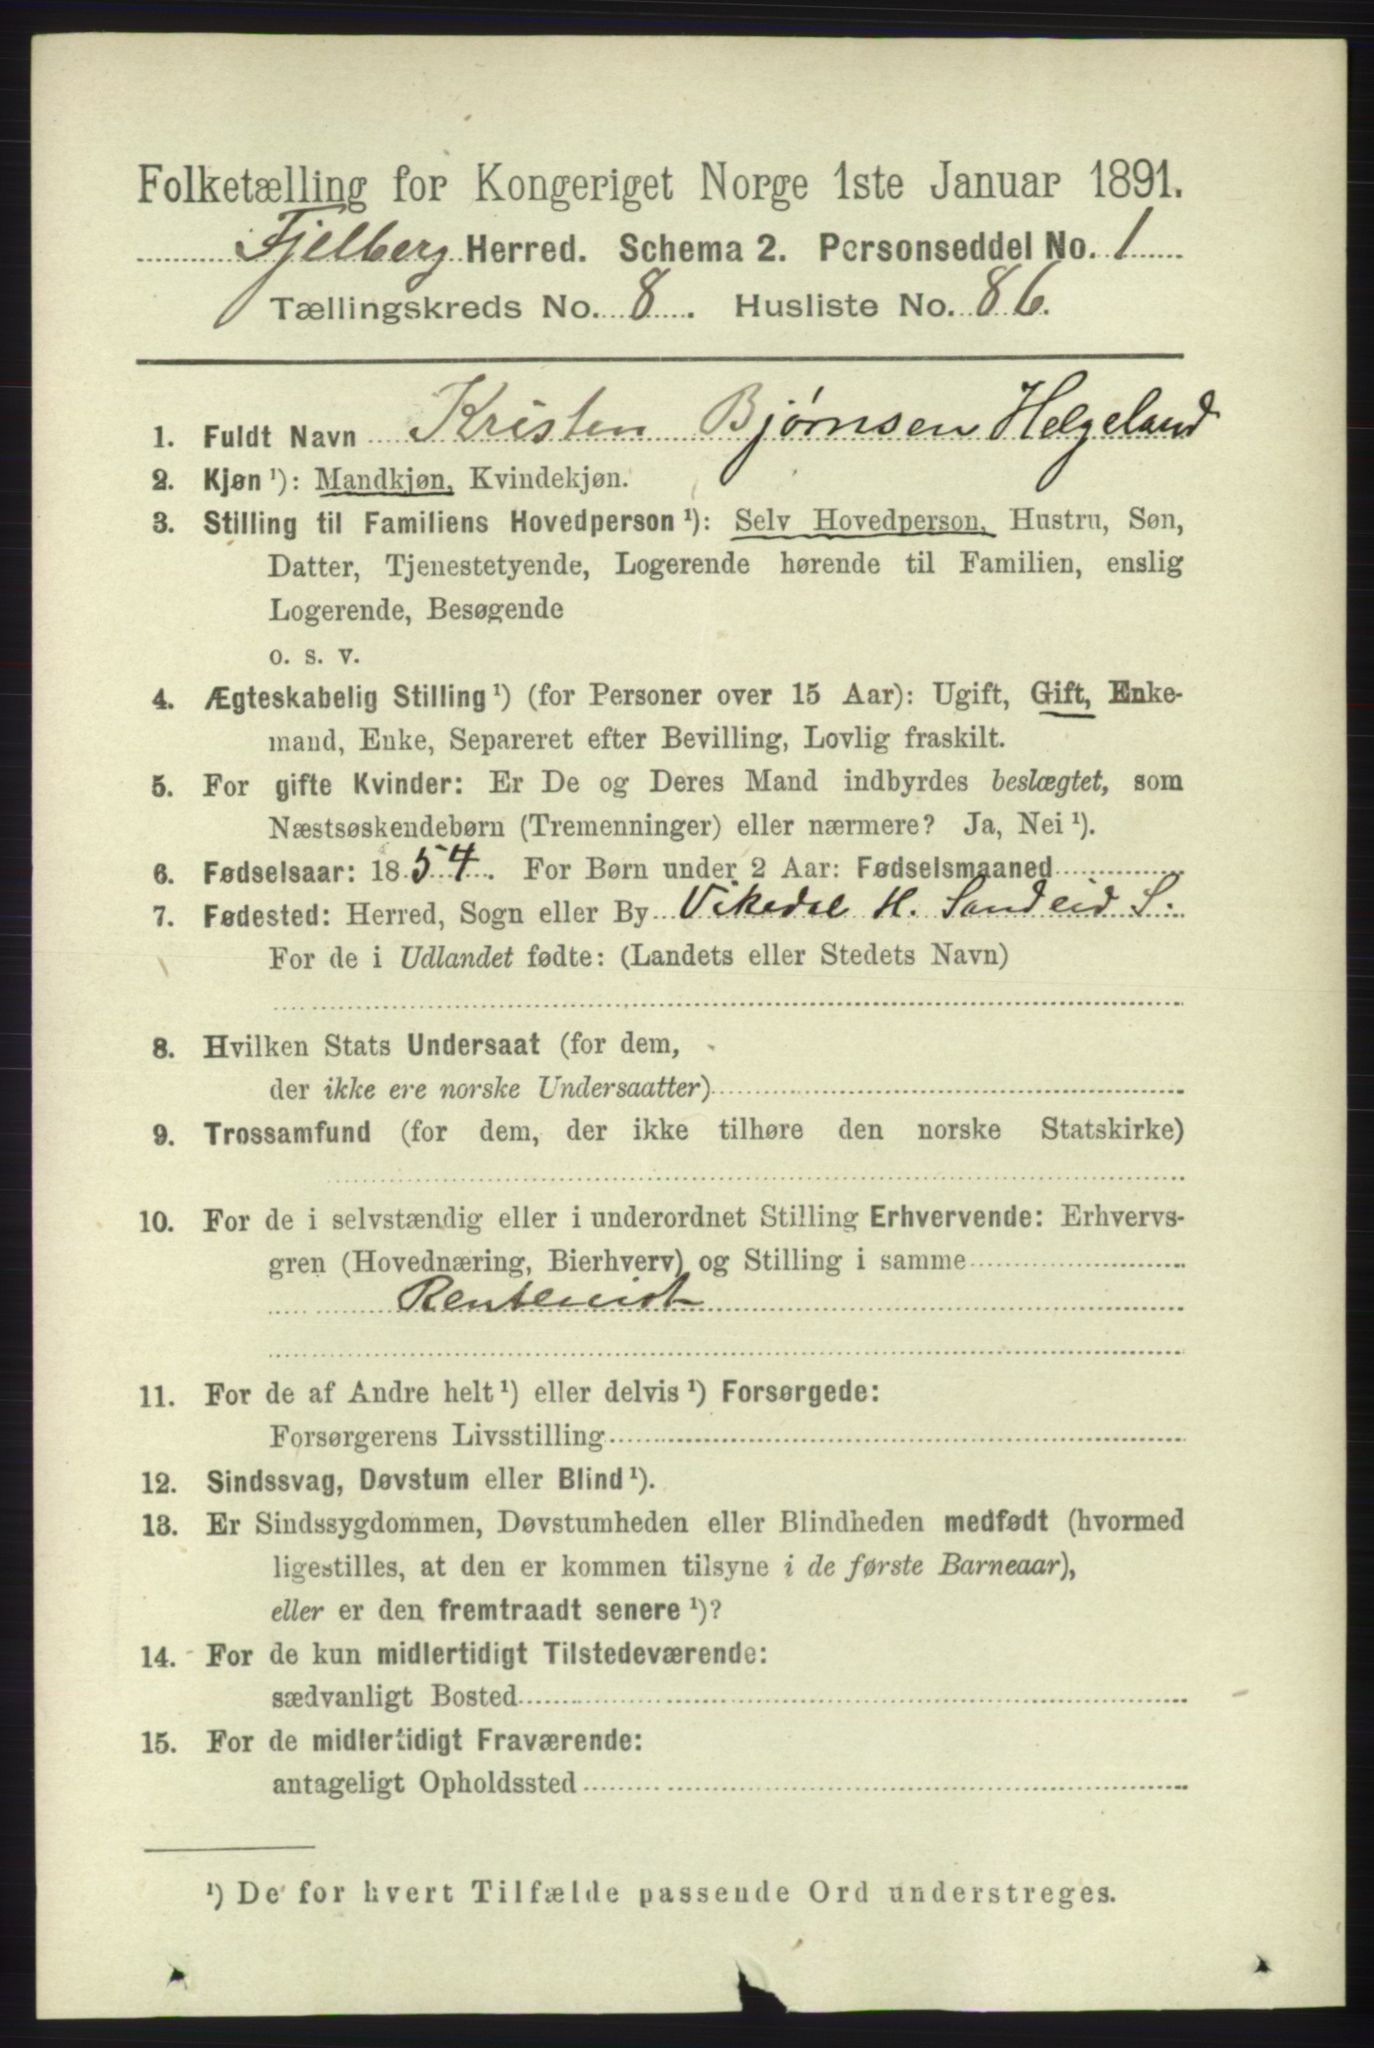 Folketælling for Kongeriget Norge 1ste Januar 1891.
Fjelberg Herred. Schema 2. Personseddel No. 1
Tællingskreds No. 8. Husliste No. 86.
1. Fuldt Navn Kristen Bjørnsen Helgeland
2. Kjøn ¹): Mandkjøn, Kvindekjøn.
3. Stilling til Familiens Hovedperson ¹): Selv Hovedperson, Hustru, Søn,
Datter, Tjenestetyende, Logerende hørende til Familien, enslig
Logerende, Besøgende
o. s. v.
4. Ægteskabelig Stilling ¹) (for Personer over 15 Aar): Ugift, Gift, Enke-
mand, Enke, Separeret efter Bevilling, Lovlig fraskilt.
5. For gifte Kvinder: Er De og Deres Mand indbyrdes beslægtet, som
Næstsøskendebørn (Tremenninger) eller nærmere? Ja, Nei ¹).
6. Fødselsaar: 1854. For Børn under 2 Aar: Fødselsmaaned
7. Fødested: Herred, Sogn eller By Vikedal H. Sandeid S.
For de i Udlandet fødte: (Landets eller Stedets Navn)
8. Hvilken Stats Undersaat (for dem,
der ikke ere norske Undersaatter)
9. Trossamfund (for dem, der ikke tilhøre den norske Statskirke)
10. For de i selvstændig eller i underordnet Stilling Erhvervende: Erhvervs-
gren (Hovednæring, Bierhverv) og Stilling i samme
Rentenist
11. For de af Andre helt ¹) eller delvis ¹) Forsørgede:
Forsørgerens Livsstilling
12. Sindssvag, Døvstum eller Blind ¹).
13. Er Sindssygdommen, Døvstumheden eller Blindheden medfødt (hvormed
ligestilles, at den er kommen tilsyne i de første Barneaar),
eller er den fremtraadt senere ¹)?
14. For de kun midlertidigt Tilstedeværende:
sædvanligt Bosted
15. For de midlertidigt Fraværende:
antageligt Opholdssted
¹) De for hvert Tilfælde passende Ord understreges.